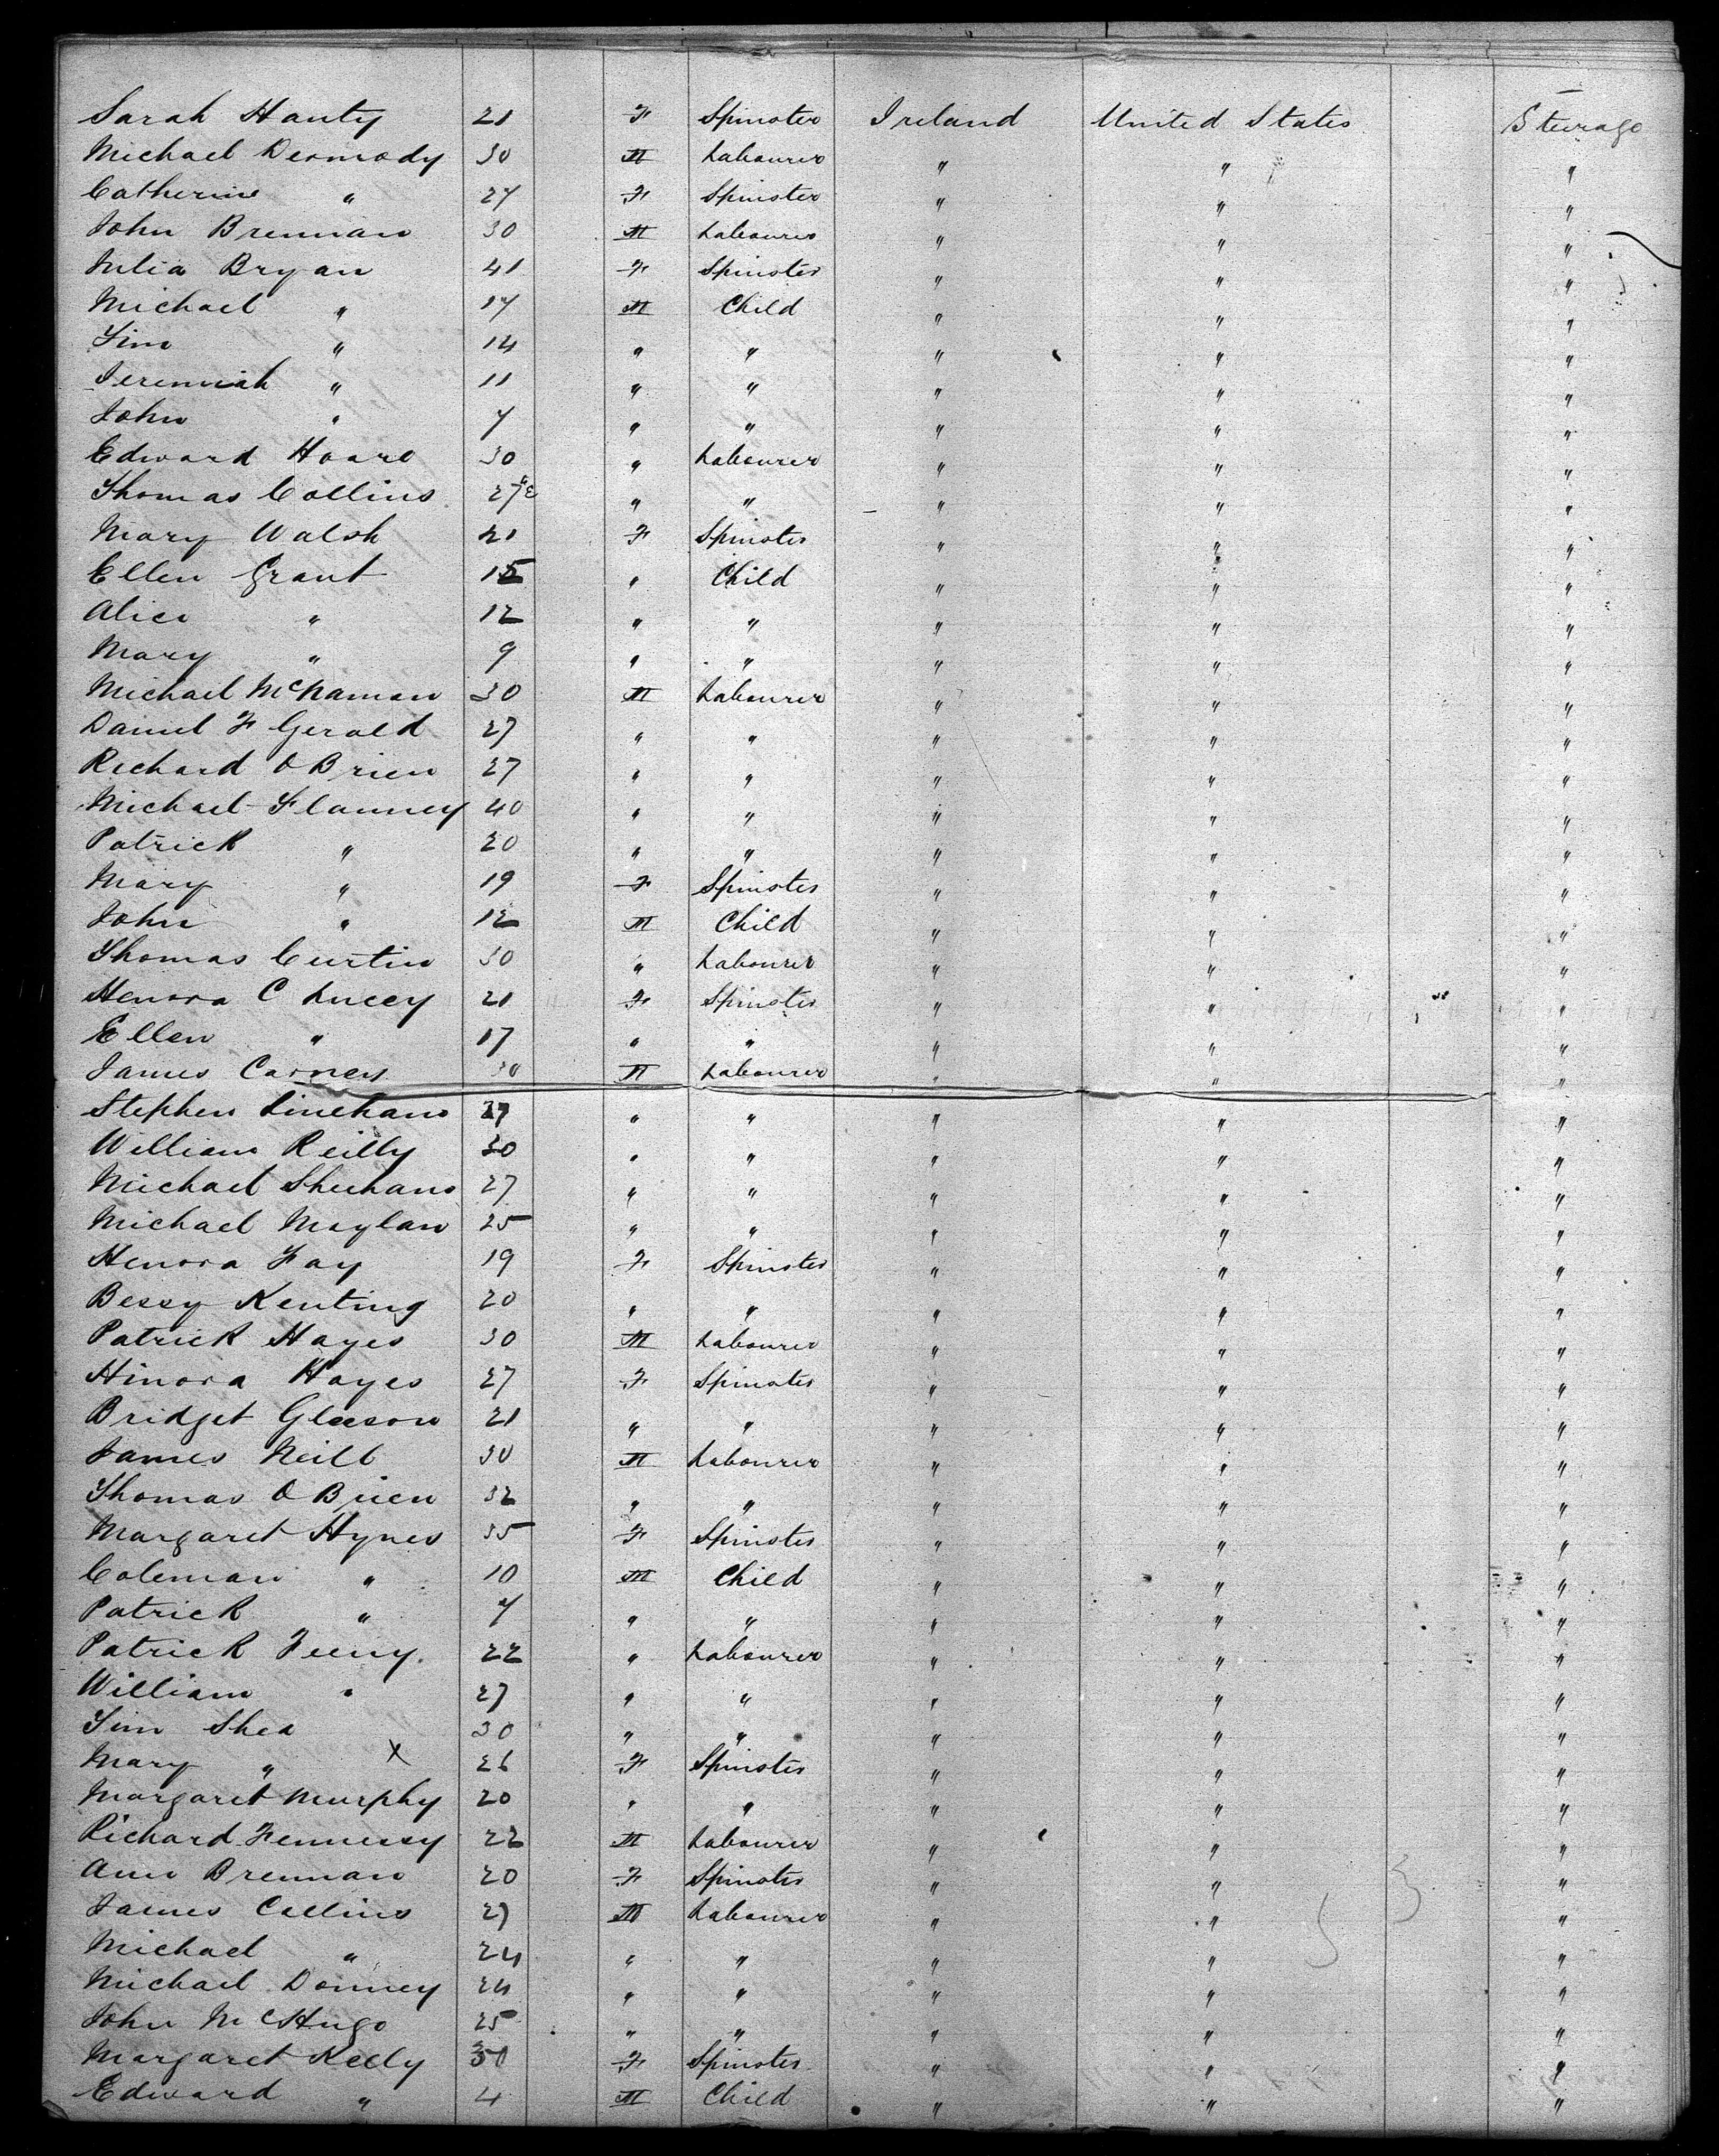 Sarah Hanty 21 F Spinster Ireland United States Steerage
Michael Dermody 30 M Labourer " " "
Catherine " 27 F Spinster " " "
John Brennan 30 M Labourer " " "
Julia Bryan 41 F Spinster " " "
Michael " 17 M Child " " "
Tim " 14 " " " " "
Jeremiah " 11 " " " " "
John " 7 " " " " "
Edward Hoare 30 " Labourer " " "
Thomas Collins 27 " " " " "
Mary Walsh 21 F Spinster " " "
Ellen Grant 15 " Child " " "
Alice " 12 " " " " "
Mary " 9 " " " " "
Michael McNaman 30 M Labourer " " "
Daniel F Gerald 27 " " " " "
Richard O Brien 27 " " " " "
Michael Flannery 40 " " " " "
Patrick " 20 " " " " "
Mary " 19 F Spinster " " "
John " 12 M Child " " "
Thomas Curtin 30 " Labourer " " "
Henora C Lucey 21 F Spinster " " "
Ellen " 17 " " " " "
James Carney 30 M Labourer " " "
Stephen Linehan 27 " " " " "
William Reilly 30 " " " " "
Michael Sheehan 27 " " " " "
Michael Moylan 25 " " " " "
Henora Fay 19 F Spinster " " "
Bessy Kenting 20 " " " " "
Patrick Hayes 30 M Labourer " " "
Hinora Hayes 27 F Spinster " " "
Bridget Gleeson 21 " " " " "
James Neill 30 M Labourer " " "
Thomas O Brien 32 " " " " "
Margaret Hynes 35 F Spinster " " "
Coleman " 10 M Child " " "
Patrick " 7 " " " " "
Patrick Feeny 22 " Labourer " " "
William " 27 " " " " "
Tim Shea 30 " " " " "
Mary " X 26 F Spinster " " "
Margaret Murphy 20 " " " " "
Richard Fennessy 22 M Labourer " " "
Ann Brennan 20 F Spinster " " "
James Collins 27 M Labourer " " "
Michael " 24 " " " " "
Michael Donney 24 " " " " "
John McHugo 25 " " " " "
Margaret Kelly 30 F Spinster " " "
Edward " 4 M Child " " "